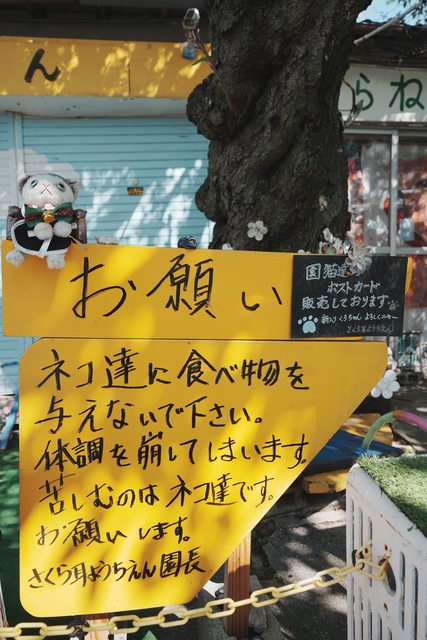 ん
らね
お願い
園猫達の
ポストカード
販売しております。
さくら耳ようちえん
ネコ達に食べ物を
与えないで下さい。
体調を崩してしまいます。
苦しむのはネコ達です。
お願いします。
さくら耳ようちえん園長